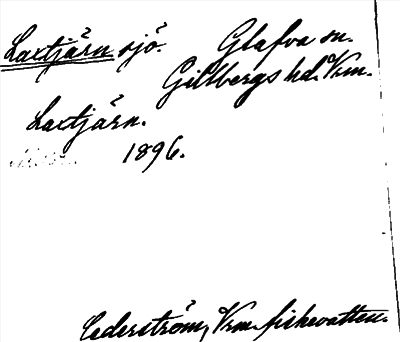 Laxtjärn sjö. Glafva sn.
Gillbergs hd. Vrm.
Laxtjärn.
1896.
Cederström, Vrm. fiskevatten.